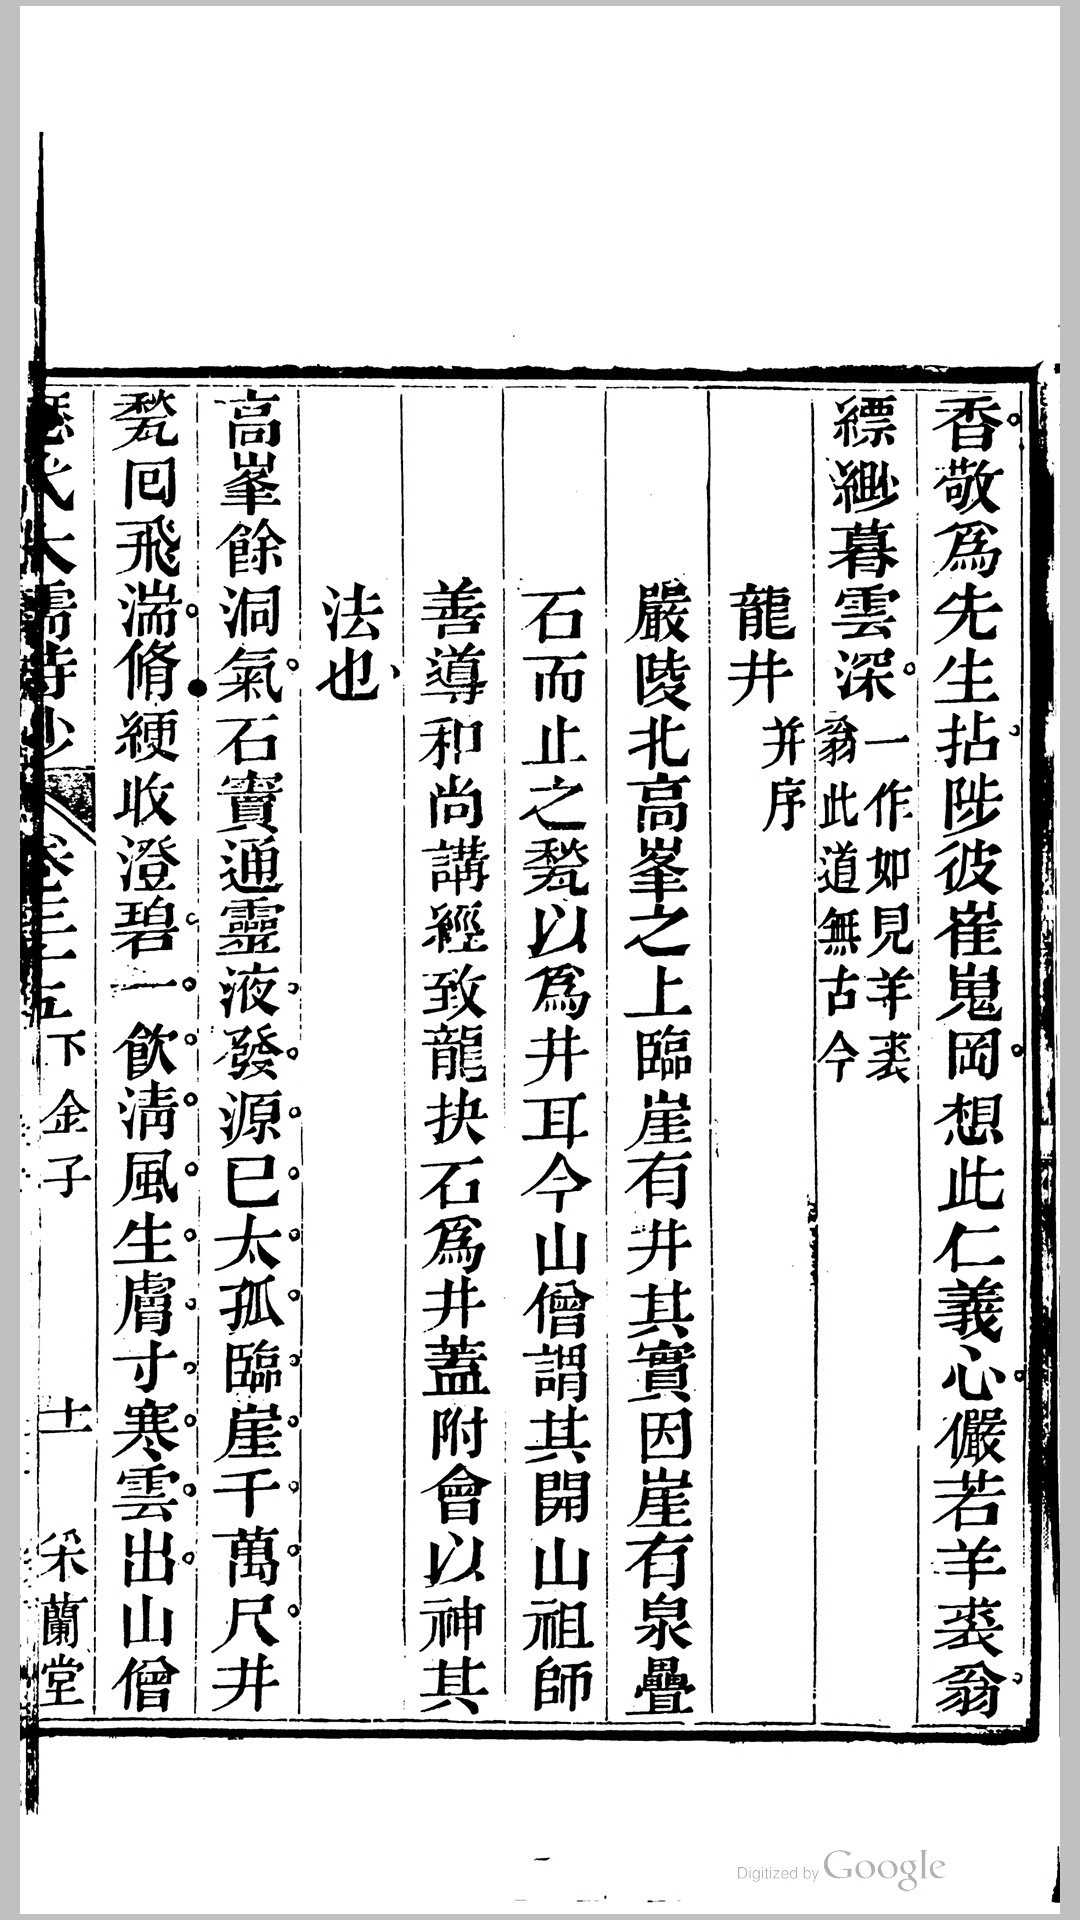 香敬爲先生拈陟彼崔嵬岡想此仁義心儼若羊裘翁
縹緲暮雲深一作如見羊裘翁此道無古今
龍井并序
嚴陵北高峯之上臨崖有井其實因崖有泉疊
石而止之甃以爲井耳今山僧謂其開山祖師
善導和尚講經致龍抉石爲井蓋附會以神其
法也
高峯餘洞氣石竇通靈液發源已太孤臨崖千萬尺井
甃回飛湍脩綆收澄碧一飮淸風生膚寸寒雲出山僧
歷代大儒詩鈔 卷三十五下 金子 十一 采蘭堂
Digitized by Google